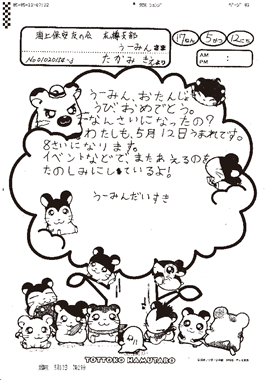 海上保安友の会 友構支部
うーみんさま
17ねん 5がつ 12にち
たかみ きえより
AM :
PM :
うーみん、おたんじょ
うびおめでとう。
なんさいになったの?
わたしも、5月12日うまれです。
8さいになります。
イベントなどで、またあえるのを
たのしみにしているよ!
うーみんだいすき
TOTTOKO HAMUTARO